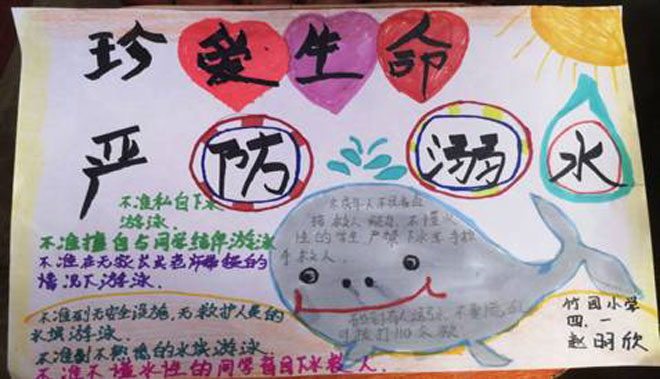 珍爱生命
严防溺水
不准私自下水
游泳.
不准擅自与同学结伴游泳
不准在无家长或老师带领的
情况下游泳.
不准到无安全设施,无救护人员的
水域游泳.
不准到不熟悉的水域游泳.
不准不懂水性的同学盲目下水救人.
性的学生 严禁下水
手救人.
竹园小学
四.一
赵明欣